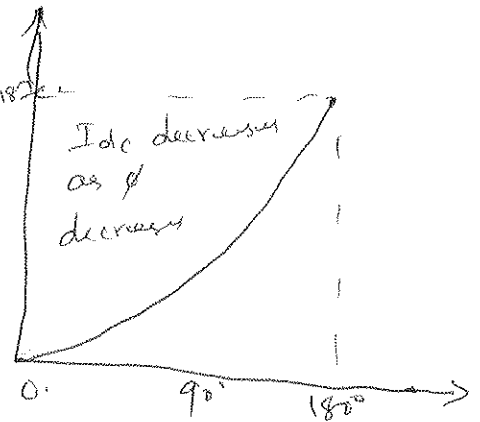 Idc decreases
as ϕ
decreases
0. 90° 180°